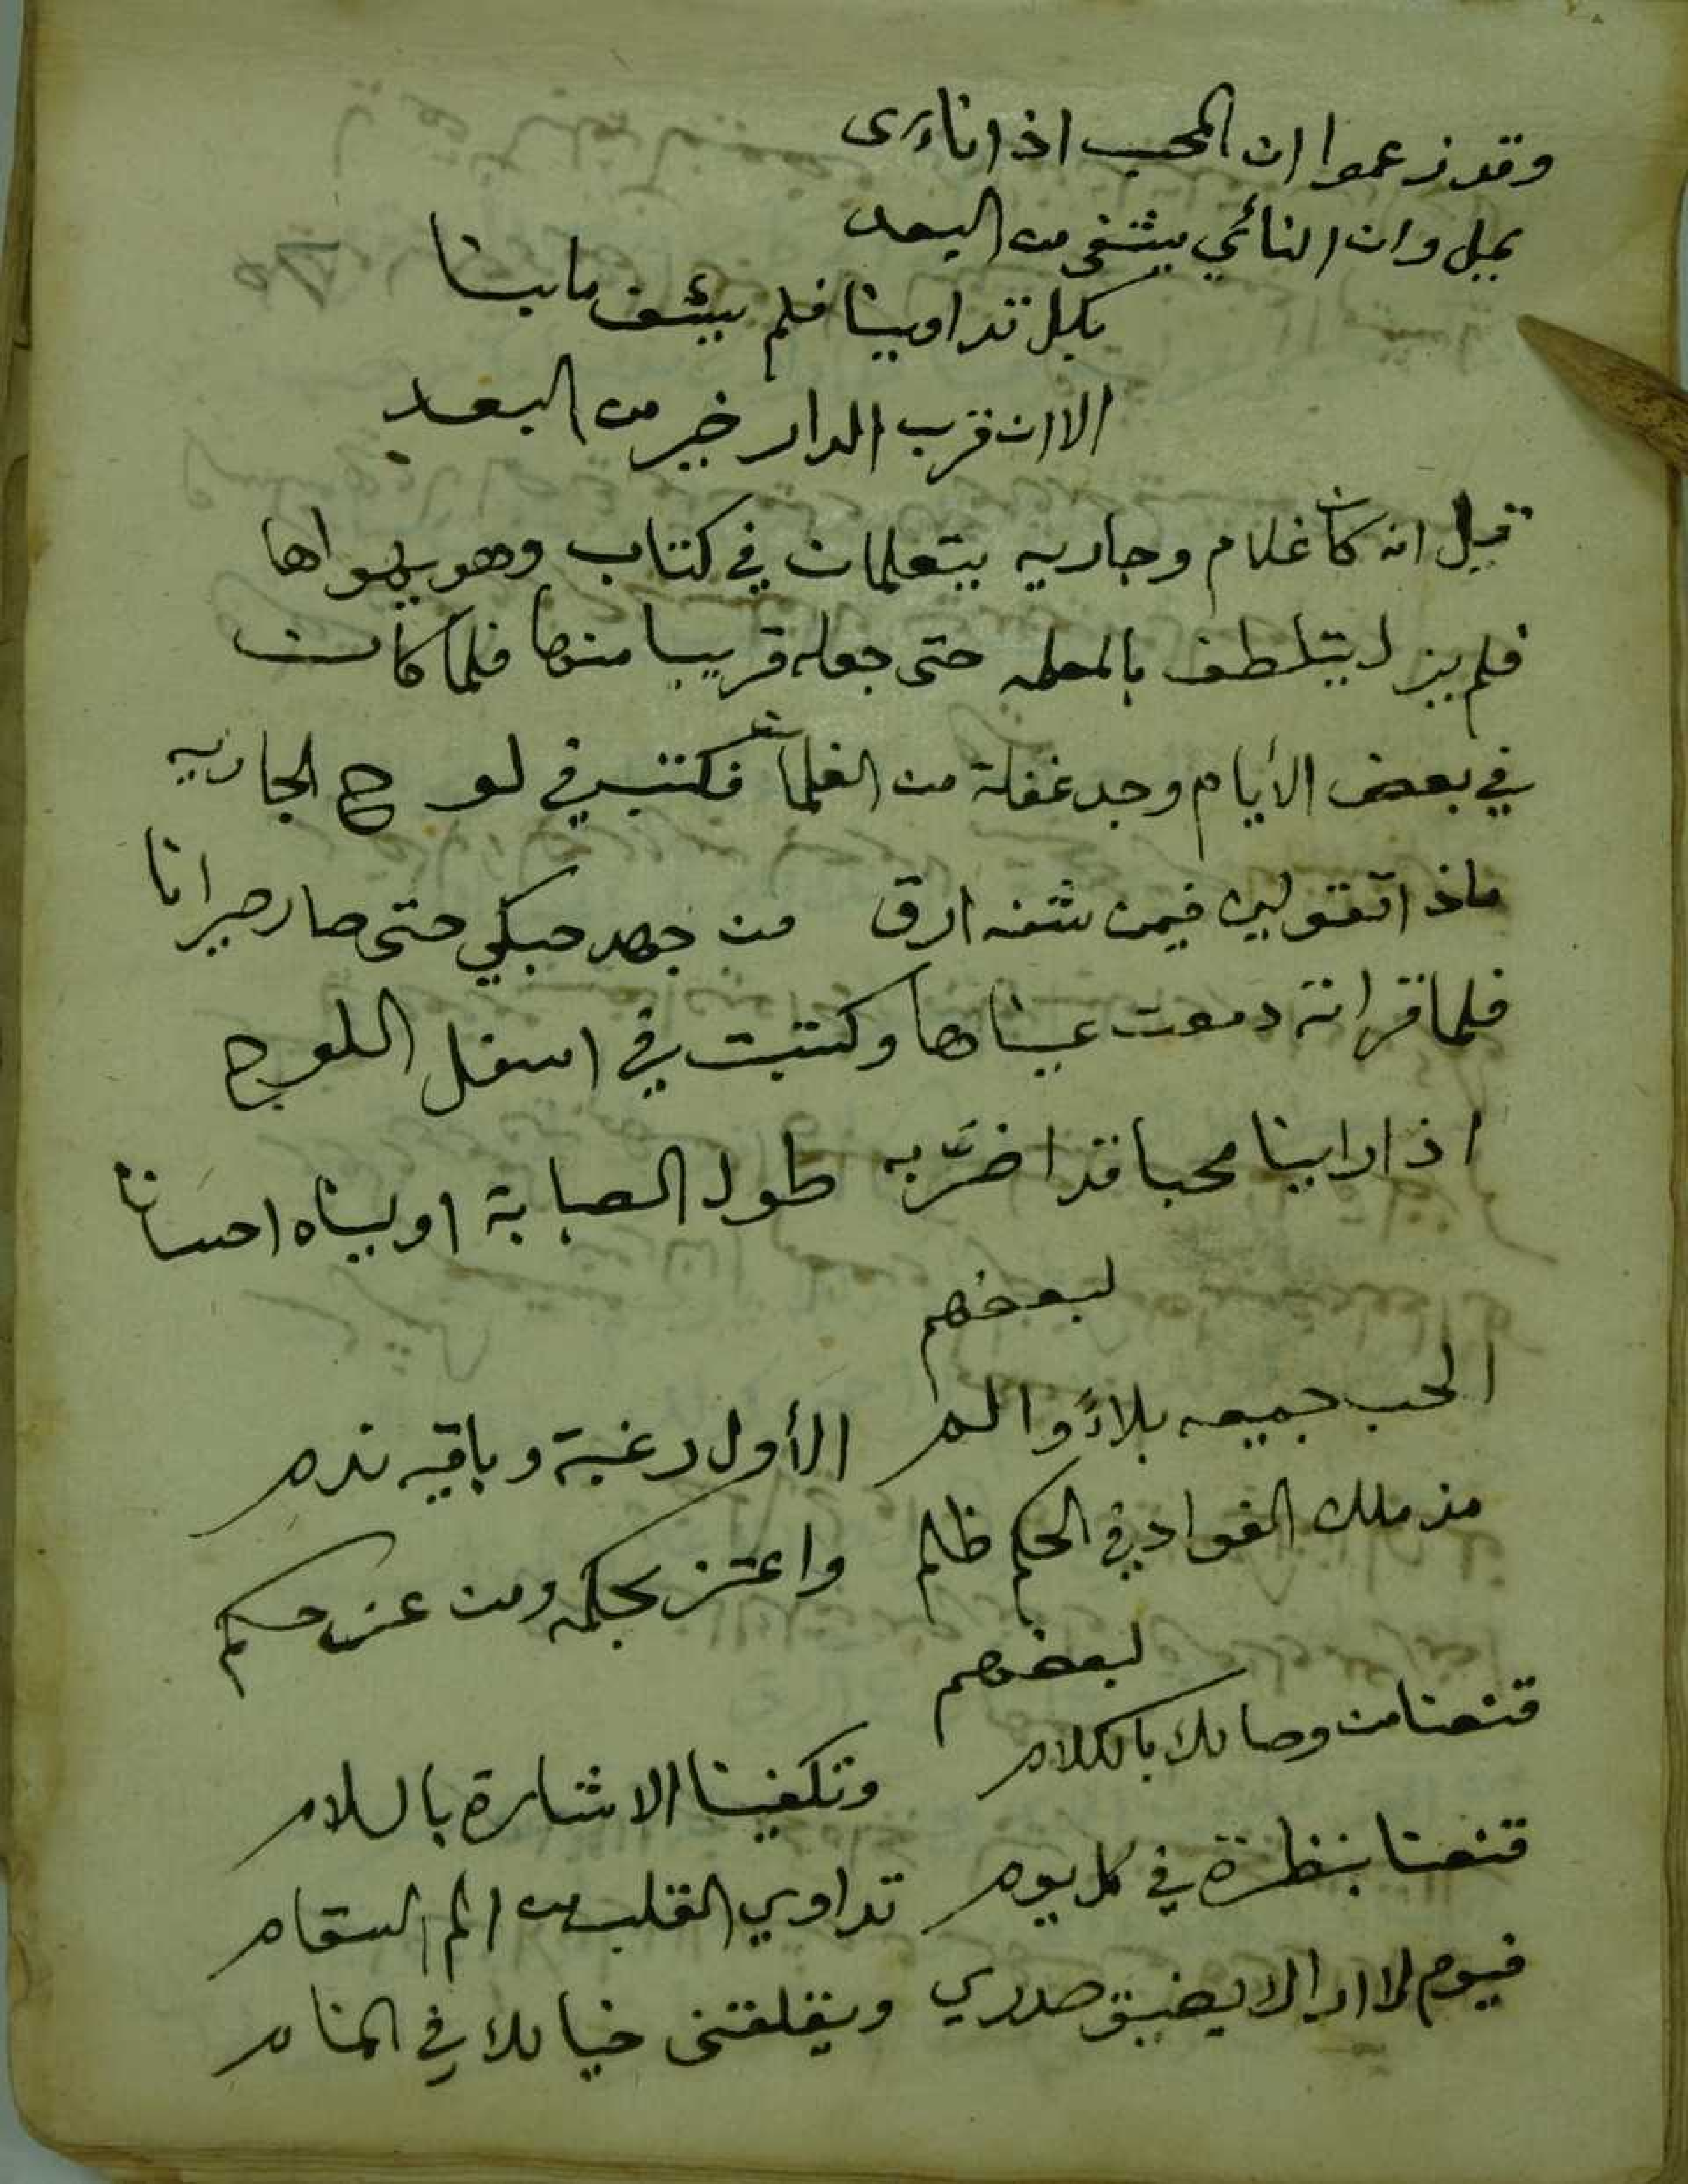 وقد زعموا ان المحب اذا ناءى
يميل وان النائي يشفى من البعد
بكل تداوينا فلم يشف ما بنا
الا ان قرب الدار خير من البعد
قيل انه كان غلام وجاريه يتعلمان في كتاب وهو يهواها
فلم يزل يتلطف بالمعلمه حتى جعله قريبا منها فلما كانت
في بعض الأيام وجد غفلة من الغلمان فكتب في لوح الجاريه
ماذا تقولين فيمن شفه ارق من جهد حبكي حتى صار حيرانا
فلما قراته دمعت عيناها وكتبت في اسفل اللوح
اذا راينا محبا قد اضرَّ به طول الصبابة اوليناه احسانا
لبعضهم
الحب جميعه بلاءً والم الأول رغبة وباقيه ندم
مذ ملك الفواد في الحكم ظلم واعتز بحكمه ومن عز حكم
لبعضهم
قنعنا من وصالك بالكلام وتكفينا الاشارة بالسلام
قنعنا بنظرة في كل يوم تداوي القلب من الم السقام
فيوم لا اراك يضيق صدري ويقلقنى خيالك في المنام